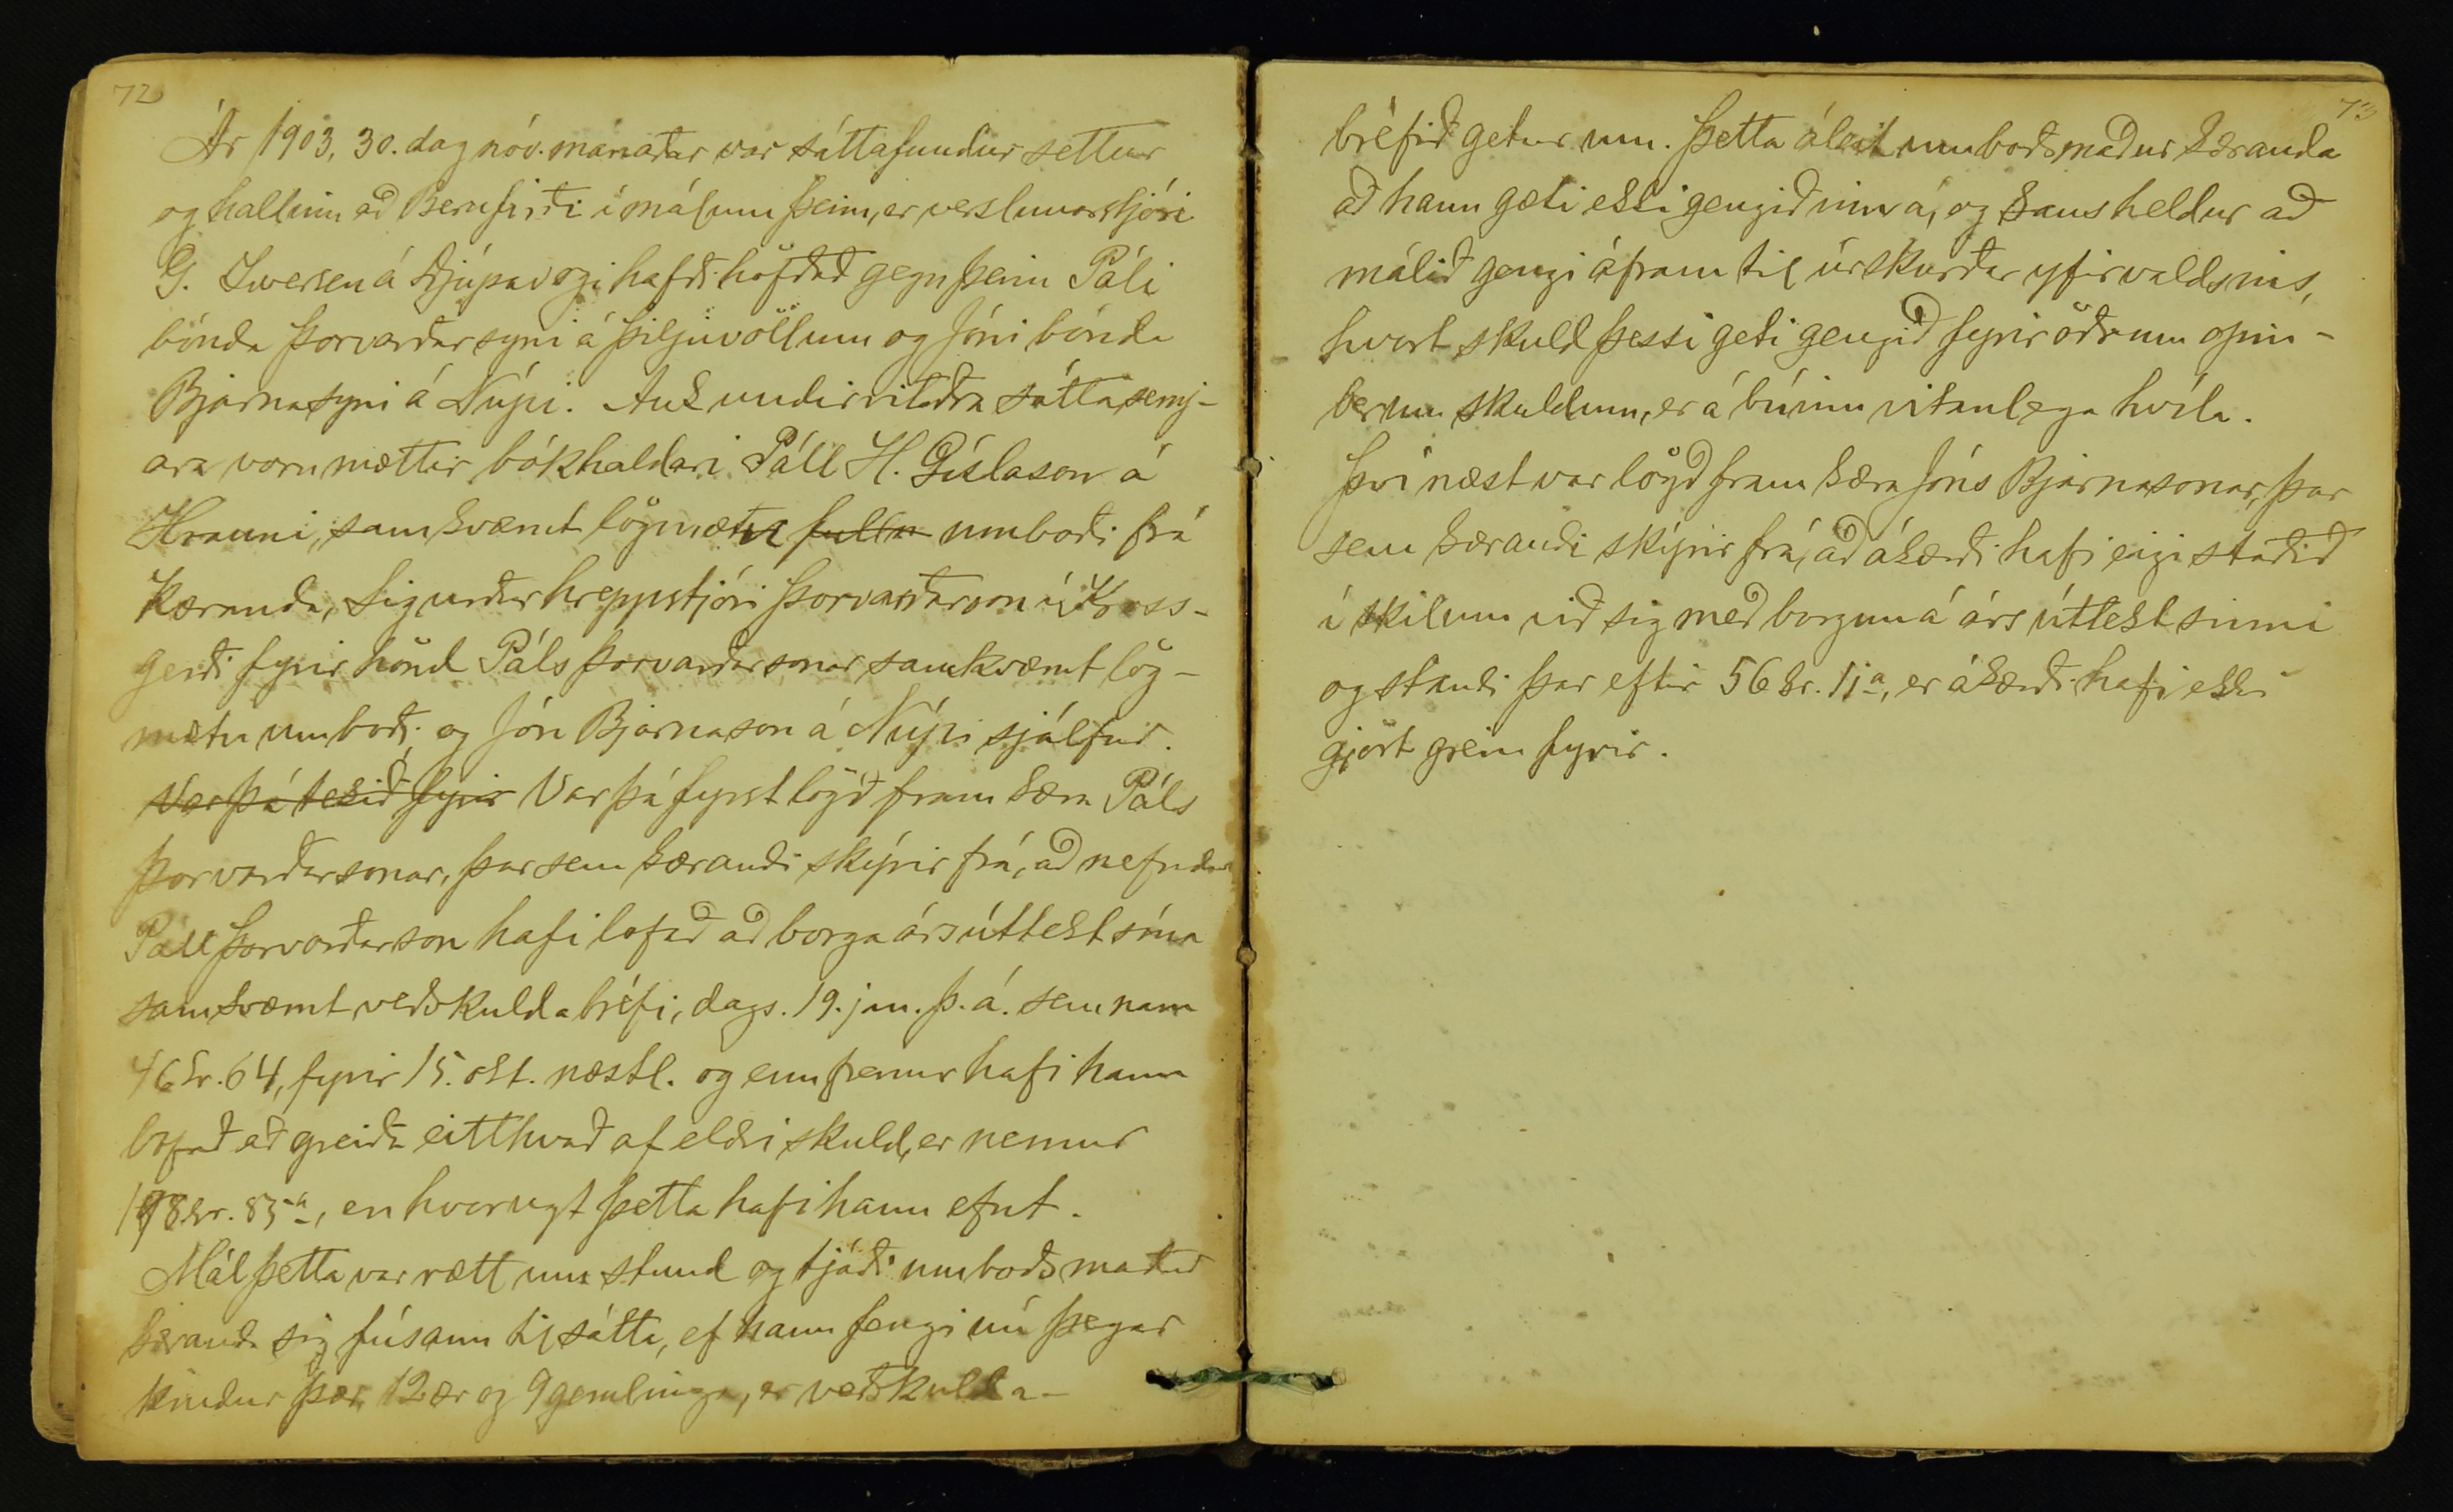 72
Ár 1903, 30. dag nóv. mánaðar var sáttafundur settur
og hallinn að Berufirði í málum þeim, er verslunarstjóri
G. Iversen á Djúpavogi hafði höfðað gegn þeim Páli
bónda Þorvarðarsyni á Þiljuvöllum og Jóni bónda
Bjarnasyni á Núpi. Auk undirritaðra sáttasemj-
ara voru mættir bókhaldari Páll H. Gíslason á
Hrauni, samkvæmt lögmætu fullu umboði frá
kæranda, Sigurður hreppstjóri Þorvarðarson í Kross-
gerði fyrir hönd Páls Þorvarðarsonar samkvæmt lög-
mætu umboði og Jón Bjarnason á Núpi sjálfur.
Var þá tekið fyrir Var þá fyrst lögð fram kæra Páls
Þorvarðarsonar, þar sem kærandi skýrir frá, að nefndur
Páll Þorvarðarson hafi lofað að borga ársúttekt sína
samkvæmt veðskuldabréfi, dags. 19. jan. þ. á. sem nam
46 kr. 64, fyrir 15. okt. næstl. og ennfremur hafi hann
lofað að greiða eitthvað af eldri skuld, er nemur
198 kr. 85 a, en hvorugt þetta hafi hann efnt.
Mál þetta var rætt um stund og tjáði umboðsmaður
kæranda sig fúsann til sátta, ef hann fengi nú þegar
kindur þær, 12 ær og 9 gemlinga, er veðskulda-
73
bréfið getur um. Þetta áleit umboðsmaður kæranda
að hann gæti ekki gengið inn á, og kaus heldur að
málið gengi áfram til úrskurðar yfirvaldsins,
hvort skuld þessi geti gengið fyrir öðrum opin-
berum skuldum, er á búinu vitanlega hvíla.
Því næst var lögð fram kæra Jóns Bjarnasonar, þar
sem kærandi skýrir frá, að ákærði hafi eigi staðið
í skilum við sig með borgun á ársúttekt sinni
og standi þar eftir 56 kr. 11 a, er ákærði hafi ekki
gjört grein fyrir.